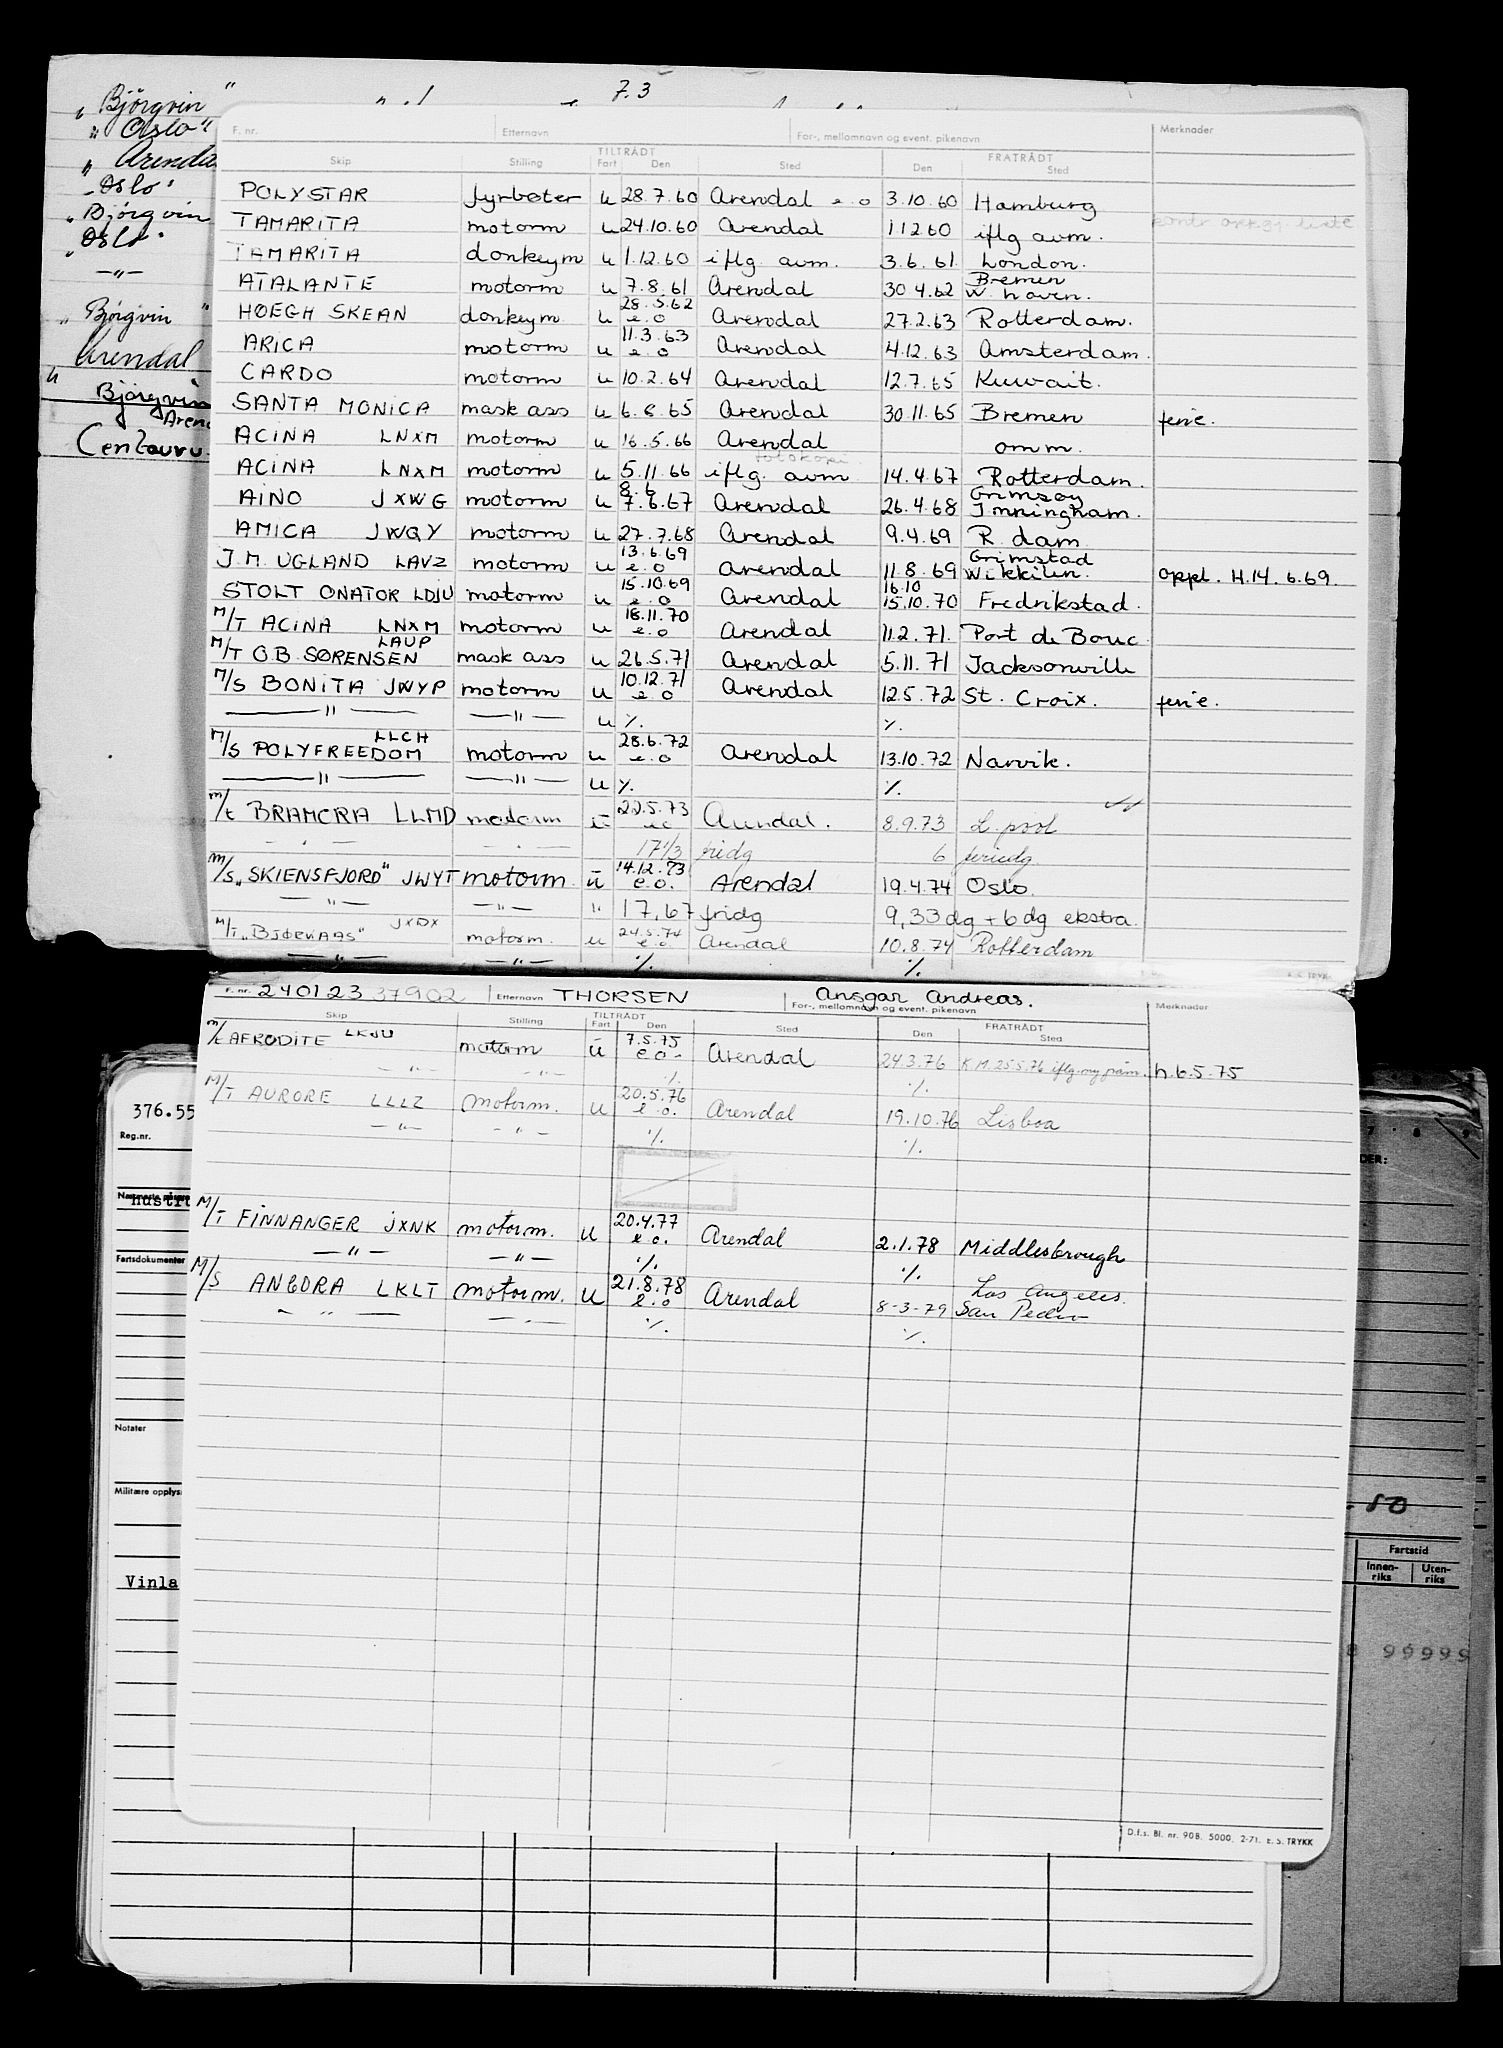 7.3
„Bjørgvin"
„Oslo"
„Arenda
-Oslo"
„Bjørgvin
„Oslo"
—"—
„Bjørgvin"
Arendal
"
Bjørgvin
Aren
Centauru
F. nr. Etternavn For-, mellomnavn og event. pikenavn Merknader
Skip Stilling TILTRÅDT Fart Den Sted FRATRÅDT Den Sted
POLYSTAR fyrbøter u 28.7.60 Arendal e o 3.10.60 Hamburg
TAMARITA motorm u 24.10.60 Arendal 1 12 60 iflg avm.
TAMARITA donkeym u 1.12.60 iflg. avm. 3.6.61 London.
ATALANTE motorm u 7.8.61 Arendal 30 4.62 Bremen W. haven.
HØEGH SKEAN donkeym u 28.5.62 e.o Arendal 27.2.63 Rotterdam.
ARICA motorm u 11.3.63 e.o Arendal 4.12.63 Amsterdam.
CARDO motorm u 10.2.64 Arendal 12.7.65 Kuwait.
SANTA MONICA mask ass u 6.8.65 Arendal 30.11.65 Bremen ferie.
ACINA LNXM motorm u 16.5.66 Arendal omm.
ACINA LNXM motorm u 5.11.66 iflg. avm fotokopi 14.4.67 Rotterdam.
AINO JXWG motorm u 8.6 7.6.67 Arendal 26.4.68 Grimsøy Imningham.
AMICA JWQY motorm u 27.7.68 Arendal 9.4.69 R. dam
J.M. UGLAND LAVZ motorm u 13.6.69 e.o Arendal 11.8.69 Grimstad Wikkilen. oppl. H.14.6.69.
STOLT ONATOR LDJU motorm u 15.10.69 e.o Arendal 16.10 15.10.70 Fredrikstad.
M/T ACINA LNXM motorm u 18.11.70 e.o Arendal 11.2.71. Port de Bouc.
M/T O.B. SØRENSEN LAUP mask ass u 26.5.71 Arendal 5.11.71 Jacksonville
M/S BONITA JWYP motorm u 10.12.71 e.o Arendal 12.5.72 St. Croix. ferie.
—"— —"— u ·/. ·/.
M/S POLYFREEDOM LLCH motorm u 28.6.72 e.o Arendal 13.10.72 Narvik.
—"— —"— u ·/. ·/.
m/t BRAMORA LLMD motorm ū 22.5.73 eo Arendal. 8.9.73 L. pool
—"— —"— 17 1/3 fridg 6 feriedg.
m/s „SKIENSFJORD" JWYT motorm. ū 14.12.73 e.o. Arendal 19.4.74 Oslo.
—"— —"— " 17,67 fridg 9,33 dg + 6 dg ekstra.
M/T „BJØRKAAS" JXDX motorm. u 24.5.74 e.o. Arendal 10.8.74 Rotterdam
—"— —"— ·/. ·/.
F. nr. 240123 37902 Etternavn THORSEN Ansgar Andreas.
For-, mellomnavn og event. pikenavn Merknader
Skip Stilling TILTRÅDT Fart Den Sted FRATRÅDT Den Sted
m/t AFRODITE LKJU motorm ū 7.5.75 e o - Arendal 24.3.76 K M. 25.5.76 iflg. h.6.5.75
—"— —"— ·/. ·/.
M/T AURORE LLLZ motorm. u 20.5.76 e.o. Arendal 19.10.76 Lisboa
—"— —"— ·/. ·/.
M/T FINNANGER JXNK motorm. u 20.4.77 e.o. Arendal 2.1.78 Middlesbrough
—"— —"— ·/. ·/.
M/S ANGORA LKLT motorm. u 21.8.78 e.o Arendal 8-3-79 Los Angeles. San Pedro
—"— —"— ·/. ·/.
D.f.s. Bl. nr. 908. 5000. 2-71. E. S. TRYKK
376.55
Reg.nr.
Hustru
Fartsdokumenter
Notater
Militære opplys
Vinla
7 8 9
DER:
.50
Fartstid
Innen-riks Uten-riks
8 99999